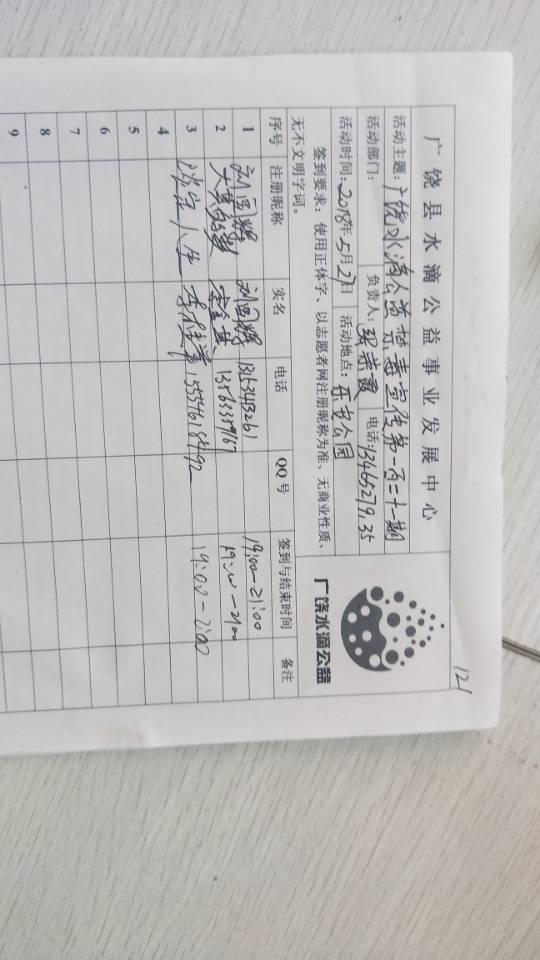 121
广饶县水滴公益事业发展中心
活动主题：广饶水滴公益禁毒宣传第一百二十一期
活动部门： 负责人： 电话：13465279.35
活动时间：2018年5月21日 活动地点：乐安公园
签到要求：使用正体字、以志愿者网注册昵称为准、无商业性质、
无不文明字词。
广饶水滴公益
序号 注册昵称 实名 电话 QQ号 签到与结束时间 备注
1 刘国辉 刘国辉 1363413261 19:00-21:00
2 13563359167 19:00-2100
3 淡定人生 李 15554618492 19:00-21:00
4
5
6
7
8
9